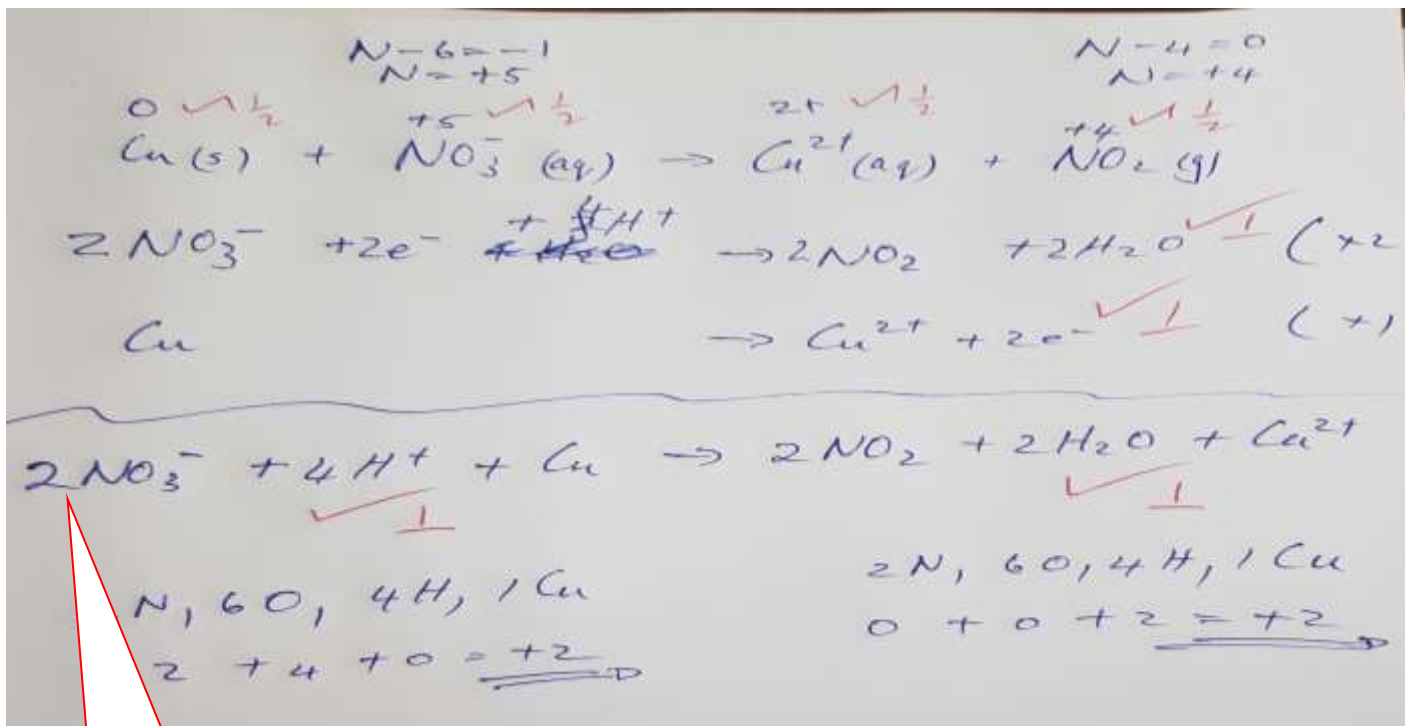 N - 6 = -1 N - 4 = 0
N = +5 N = +4
0 ✓ 1/2 +5 ✓ 1/2 2+ ✓ 1/2 +4 ✓ 1/2
Cu (s) + NO₃⁻ (aq) → Cu²⁺ (aq) + NO₂ (g)
2NO₃⁻ + 2e⁻ + H⁺ → 2NO₂ + 2H₂O ✓ 1 (×2
Cu → Cu²⁺ + 2e⁻ ✓ 1 (×1
2NO₃⁻ + 4H⁺ + Cu → 2NO₂ + 2H₂O + Cu²⁺
✓ 1 ✓ 1
N, 6O, 4H, 1Cu 2N, 6O, 4H, 1Cu
2 + 4 + 0 = +2 0 + 0 + 2 = +2